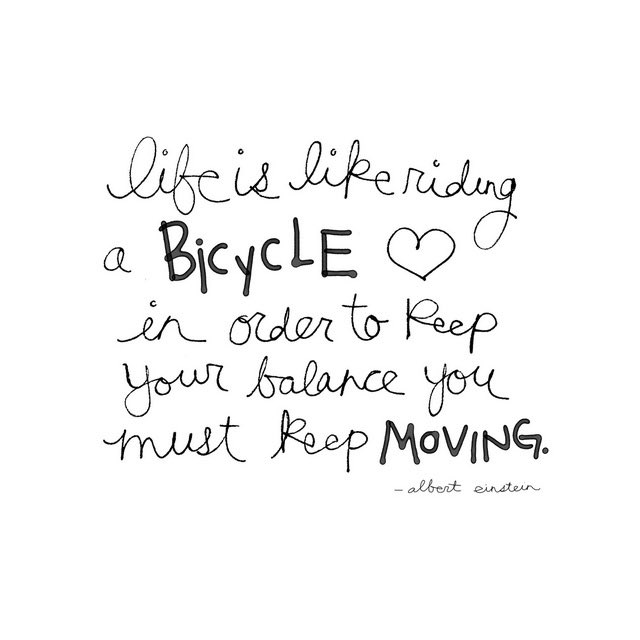 life is like riding
a BicycLE
in order to keep
your balance you
must keep MOVING.
– albert einstein